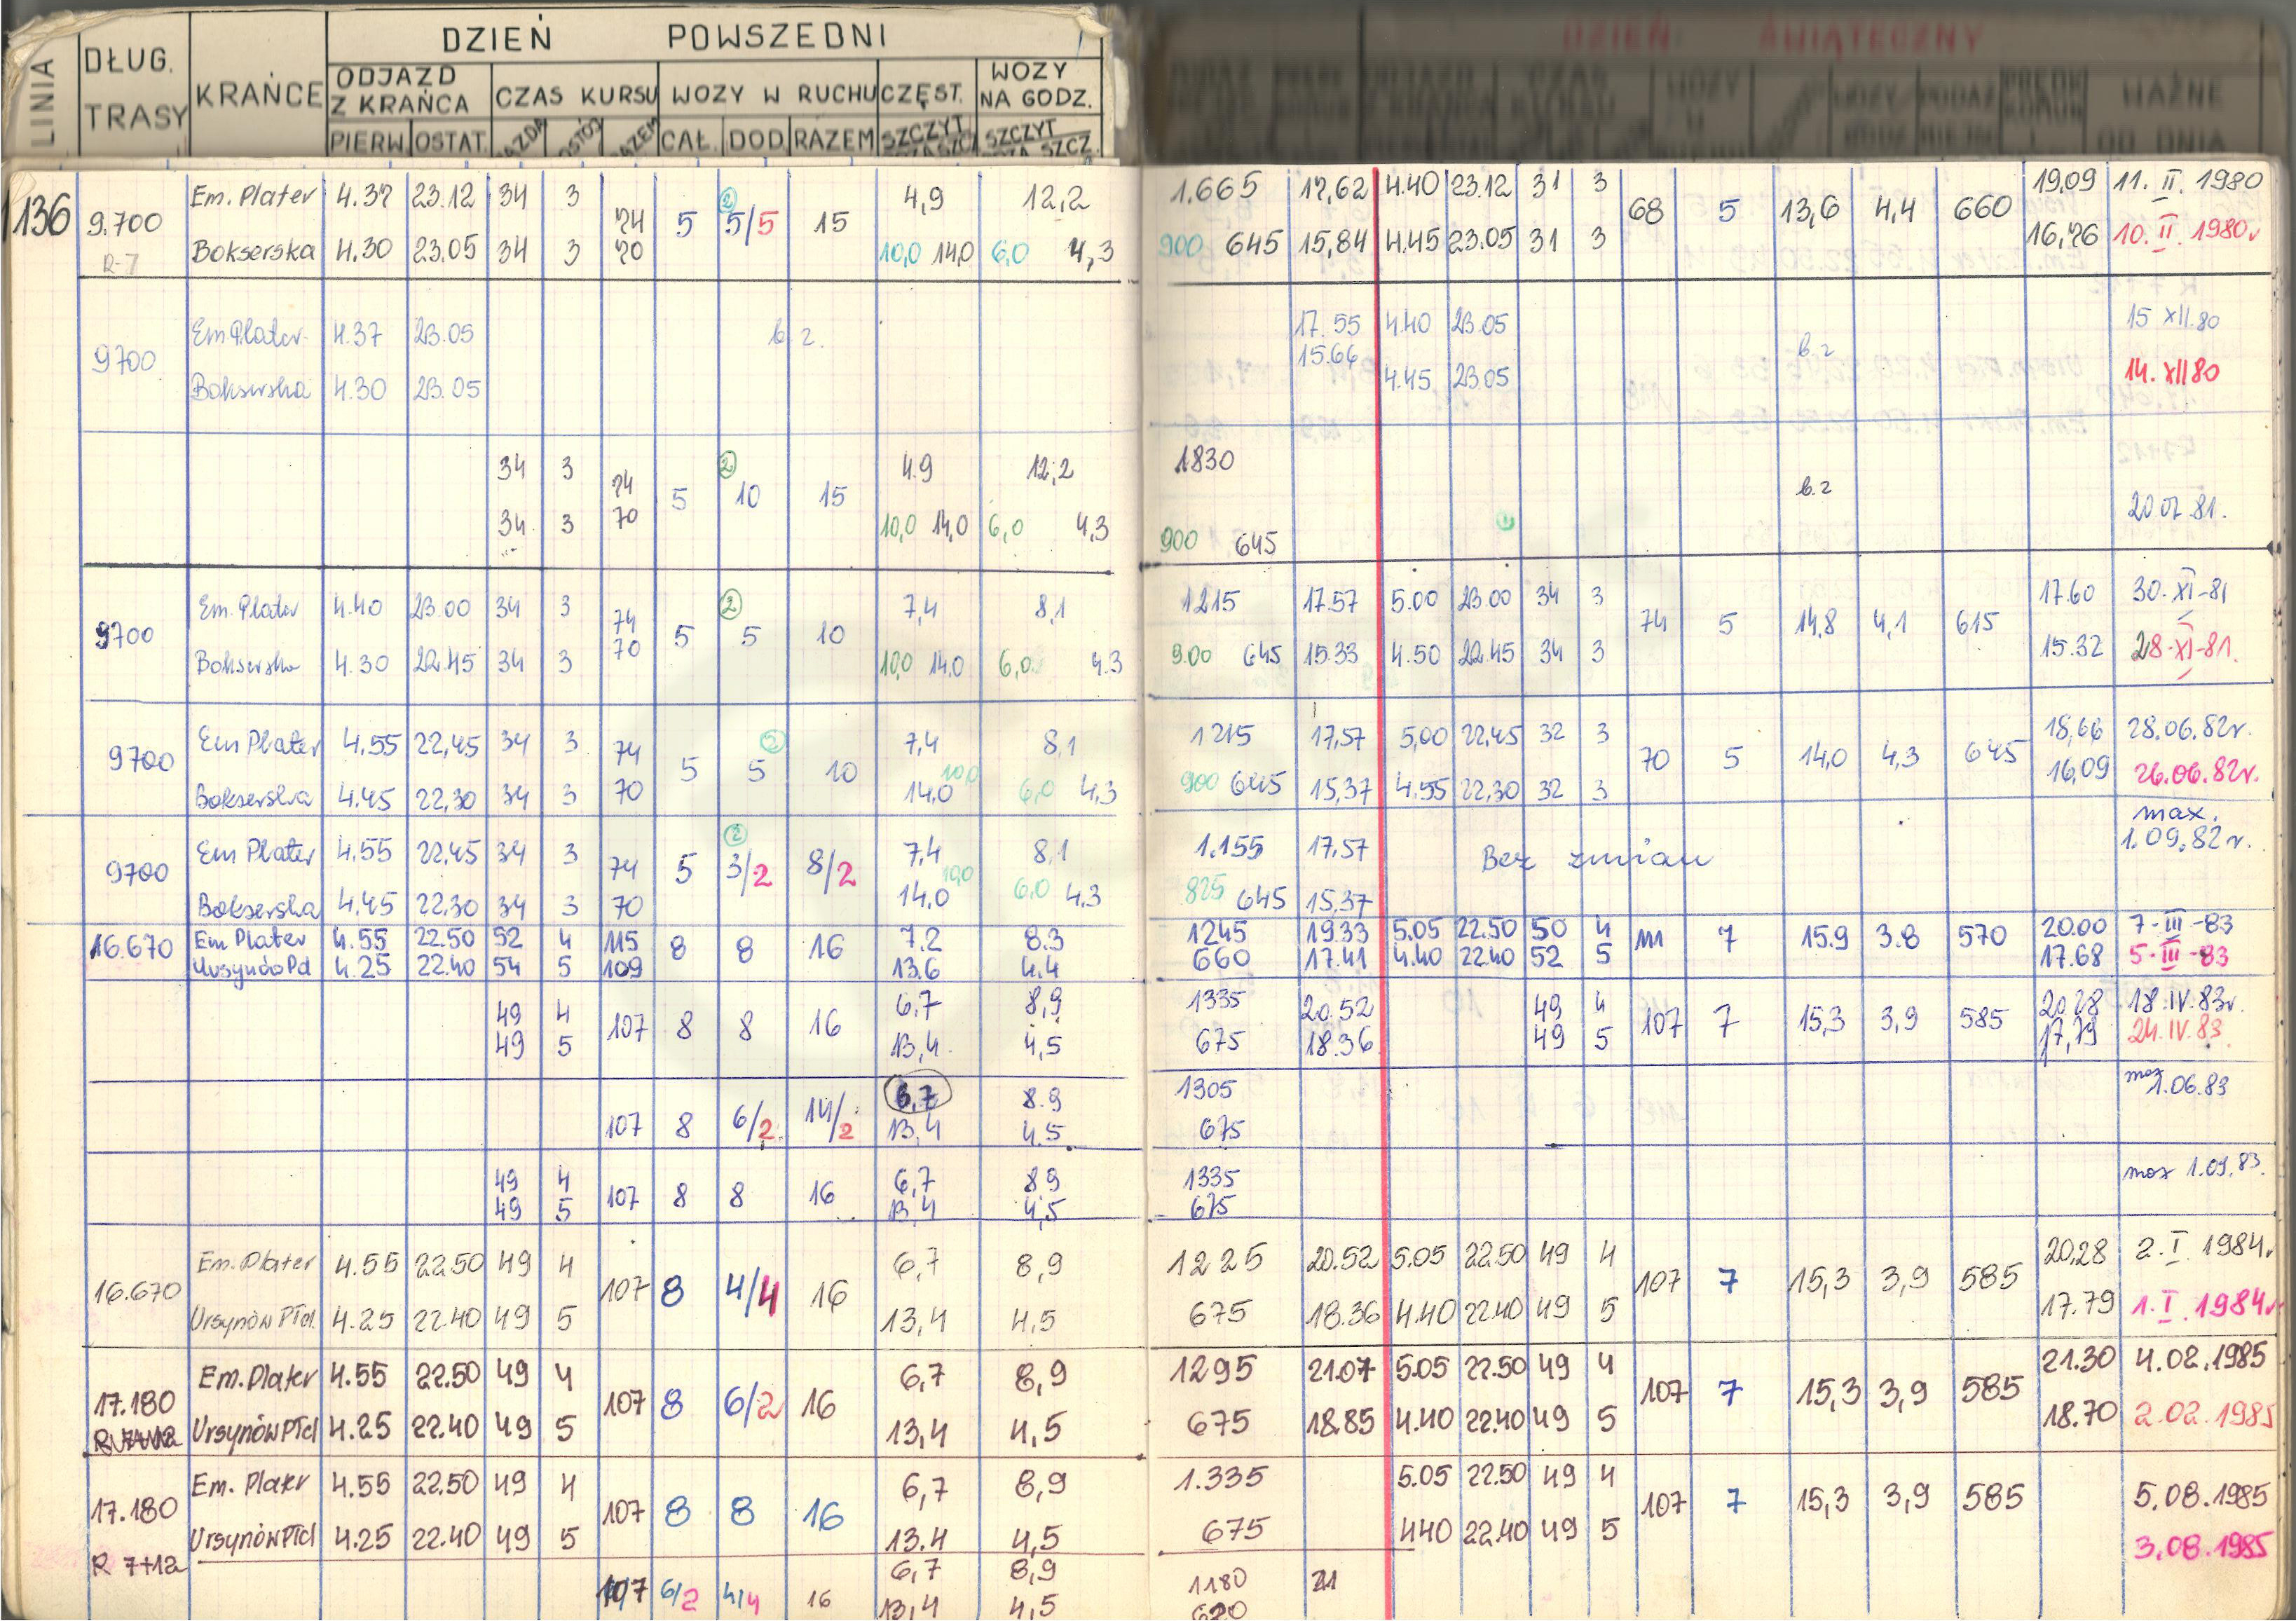 DZIEŃ POWSZEDNI
LINIA DŁUG. TRASY KRAŃCE ODJAZD Z KRAŃCA CZAS KURSU WOZY W RUCHU CZĘST. WOZY NA GODZ.
PIERW. OSTAT. CAŁ. DOD. RAZEM SZCZYT SZCZYT
DZIEŃ ŚWIĄTECZNY
WAŻNE OD DNIA
Em. Plater 4.37 23.12 34 3 4,9 12,2 1.665 17,62 4.40 23.12 31 3 19.09 11. II. 1980
136 9.700 74 5 ② 5/5 15 68 5 13,6 4,4 660
R-7 Bokserska 4.30 23.05 34 3 70 10,0 14,0 6,0 4,3 900 645 15,84 4.45 23.05 31 3 16,76 10. II. 1980r
Em Plater 4.37 23.05 17.55 4.40 23.05 15 XII.80
9700 b.z. 15.66 b.z
Bokserska 4.30 23.05 4.45 23.05 14. XII 80
34 3 74 ② 4.9 12,2 1830
5 10 15 b.z
34 3 70 10,0 14,0 6,0 4,3 900 645 20.07.81.
Em. Plater 4.40 23.00 34 3 74 ② 7,4 8,1 1215 17.57 5.00 23.00 34 3 17.60 30-XI-81
9700 5 5 10 74 5 14,8 4,1 615
Bokserska 4.30 22.45 34 3 70 10,0 14.0 6,0 4.3 900 645 15.33 4.50 22.45 34 3 15.32 28-XI-81.
Em Plater 4.55 22,45 34 3 74 ② 7,4 8,1 1215 17,57 5,00 22,45 32 3 18,66 28.06.82r.
9700 5 5 10 70 5 14,0 4,3 645
Bokserska 4.45 22,30 34 3 70 14.0 10,0 6,0 4,3 900 645 15,37 4.55 22,30 32 3 16,09 26.06.82r.
Em Plater 4.55 22,45 34 3 74 ② 7,4 8,1 1.155 17,57 max. 1.09.82r.
9700 5 3/2 8/2 Bez zmian
Bokserska 4.45 22.30 34 3 70 14,0 10,0 6,0 4.3 825 645 15,37
16.670 Em Plater 4.55 22.50 52 4 115 8 8 16 7.2 8.3 1245 19.33 5.05 22.50 50 4 111 7 15.9 3.8 570 20.00 7-III-83
4.25 22.40 54 5 109 13.6 4.4 660 17.41 4.40 22.40 52 5 17.68 5-III-83
49 4 107 8 8 16 6,7 8,9 1335 20.52 49 4 107 7 15,3 3,9 585 20,28 18.IV.83r.
49 5 13,4 4,5 675 18.36 49 5 17,79 24.IV.83
107 8 6/2 14/2 6,7 8.9 1305 max 1.06.83
13.4 4.5 675
49 4 107 8 8 16 6,7 8,9 1335 max 1.09.83.
49 5 13,4 4,5 675
Em. Plater 4.55 22.50 49 4 6,7 8,9 1225 20.52 5.05 22.50 49 4 20,28 2. I. 1984r
16.670 107 8 4/4 16 107 7 15,3 3,9 585
Ursynów Płd. 4.25 22.40 49 5 13,4 4,5 675 18.36 4.40 22.40 49 5 17.79 1. I. 1984r
Em. Plater 4.55 22.50 49 4 6,7 8,9 1295 21.07 5.05 22.50 49 4 21.30 4.02.1985
17.180 107 8 6/2 16 107 7 15,3 3,9 585
Ursynów Płd 4.25 22.40 49 5 13,4 4,5 675 18.85 4.40 22.40 49 5 18.70 2.02.1985
Em. Plater 4.55 22.50 49 4 6,7 8,9 1.335 5.05 22.50 49 4 5.08.1985
17.180 107 8 8 16 107 7 15,3 3,9 585
Ursynów Płd 4.25 22.40 49 5 13.4 4,5 675 4.40 22.40 49 5 3.08.1985
R 7+12
107 6/2 4/4 16 6,7 8,9 1180 21
13,4 4,5 620